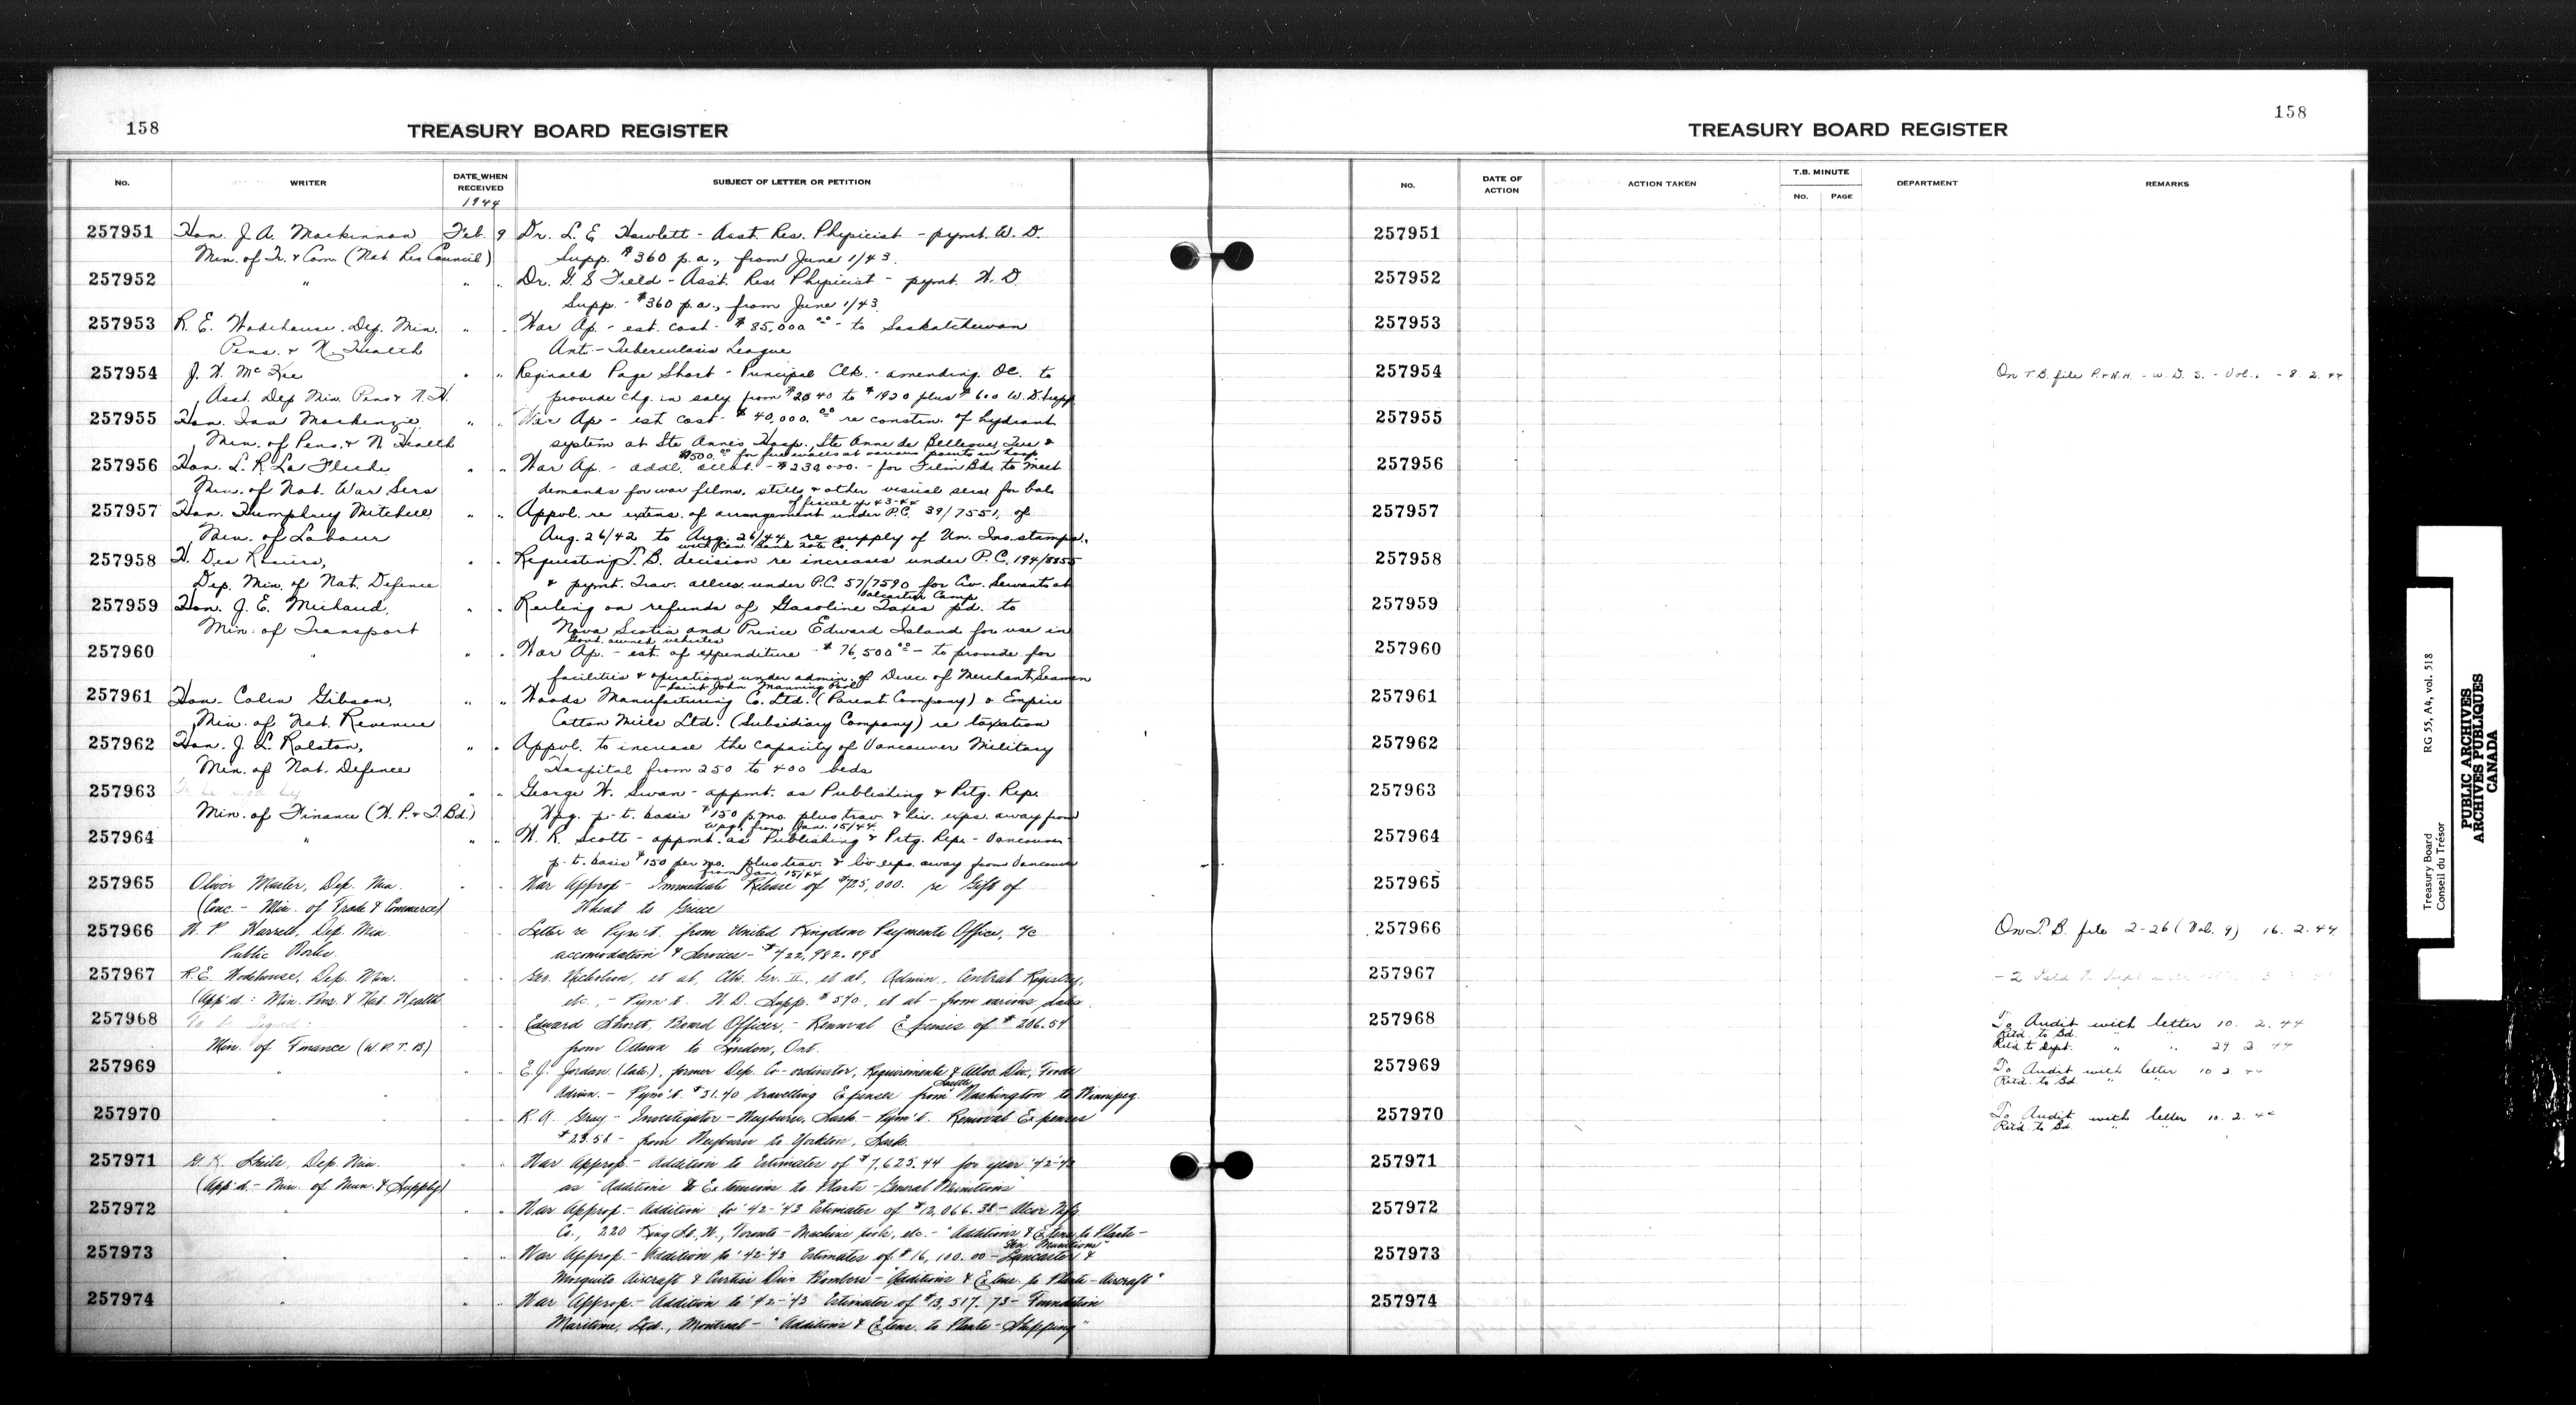 158
TREASURY BOARD REGISTER
No.
WRITER
DATE WHEN RECEIVED
1944
SUBJECT OF LETTER OR PETITION
257951 Hon. J. A. Mackinnon Feb. 9 Dr. L. E. Howlett - Asst. Res. Physicist - pymt. W. D.
Min. of Tr. & Com. (Nat. Res Council) Supp. $360 p.a., from June 1/43.
257952 " " " Dr. G. S Field - Asst. Res. Physicist - pymt. W. D.
Supp. - $360 p.a., from June 1/43.
257953 R. E. Wodehouse, Dep. Min. " " War Ap. - est. cost - $85,000.00 - to Saskatchewan
Pens. & N. Health Anti-Tuberculosis League
257954 J. W. McKee " " Reginald Page Short - Principal Clk. - amending OC. to
Asst. Dep Min. Pens & N. H. provide chg. in saly. from $2040 to $1920 plus $600 W. D. Supp
257955 Hon. Ian Mackenzie, " " War Ap - est cost - $40,000.00 re constrn. of hydrant
Min. of Pens. & N. Health system at Ste Anne's Hosp., Ste Anne de Bellevue, Que &
$500.00 for fire walls at various points in hosp
257956 Hon. L. R. La Fleche, " " War Ap. - addl. allot. - $239,000. - for Film Bd. to meet
Min. of Nat. War Sers demands for war films, stills & other visual sers for bal.
of fiscal yr 43-44
257957 Hon. Humphrey Mitchell, " " Appvl. re extens. of arrangement under P.C. 39/7551, of
Min. of Labour Aug. 26/42 to Aug. 26/44, re supply of Un. Ins. stamps,
with Can. Bank Note Co.
257958 H. Des Rosiers, " " Requesting T. B. decision re increases under P. C. 194/8855
Dep. Min. of Nat. Defence & pymt. Trav. allces under P.C. 57/7590 for Civ. Servants at
Valcartier Camp
257959 Hon. J. E. Michaud, " " Ruling on refunds of Gasoline Taxes pd. to
Min. of Transport Nova Scotia and Prince Edward Island for use in
Govt. owned vehicles
257960 " " " War Ap. - est. of expenditure - $76,500.00 - to provide for
facilities & operations under admin. of Direc. of Merchant Seamen
- Saint John Manning Pool
257961 Hon. Colin Gibson, " " Woods Manufacturing Co. Ltd. (Parent Company) & Empire
Min. of Nat. Revenue Cotton Mills Ltd. (Subsidiary Company) re taxation
257962 Hon. J. L. Ralston, " " Appvl. to increase the capacity of Vancouver Military
Min. of Nat. Defence Hospital from 250 to 400 beds
257963 To be sgd by " " George W. Swan - appmt. as Publishing & Ptg. Rep.
Min. of Finance (W. P. & T. Bd.) Wpg. p-t. basis $150 p.mo. plus trav. & liv. exps. away from
Wpg. from Jan. 15/44.
257964 " " " W. R. Scott - appmt. as Publishing & Ptg. Rep. - Vancouver
p-t. basis $150 per mo. plus trav. & liv exps. away from Vancouver
from Jan. 15/44
257965 Oliver Master, Dep. Min. " " War Approp - Immediate Release of $725,000. re Gift of
(Conc. - Min. of Trade & Commerce) Wheat to Greece
257966 Dep. Min. " " Letter re Pym't. from United Kingdom Payments Office, a/c
Public Works accomodation & Services -
257967 R. E. Wodehouse, Dep. Min. " " Geo. Nicholson, et al, Clk. Gr. II, et al, Admin., Central Registry,
(App'd: Min. Pens. & Nat. Health etc., - Pym't. W. D. Supp. et al - from various dates.
257968 To be Signed: " " Edward Shortt, Board Officer, - Removal Expenses of $206.54
Min. of Finance (W.P.T.B.) from Ottawa to London, Ont.
257969 " " " E. J. Jordan (late), former Dep. Co-ordinator, Requirements & Alloc. Div., Foods
Admin. - Pym't. $31.40 travelling Expenses from Washington to Winnipeg.
257970 " " " R. A. Gray - Investigator - Weyburn, Sask - Pym't. Removal Expenses
$23.58 - from Weyburn to Yorkton, Sask.
257971 G. K. Sheils, Dep. Min. " " War Approp. - Addition to Estimates of $7,625.44 for year '42-'43
(App'd. - Min. of Mun. & Supply) as "Additions & Extensions to Plants - General Munitions"
257972 " " " War Approp. - Addition to '42-'43 Estimates of $12,066.38 - Mfg.
Co., 220 King St. W., Toronto - Machine tools, etc. - "Additions & Extens. to Plants -
Gen. Munitions"
257973 " " " War Approp. - Addition to '42-'43 Estimates of $16,100.00 - Lancaster &
Mosquito Aircraft & Curtiss Dive Bombers - "Additions & Extens. to Plants - Aircraft"
257974 " " " War Approp. - Addition to '42-'43 Estimates of $13,517.73 - Foundation
Maritime, Ltd., Montreal - "Additions & Extens. to Plants - Shipping"
158
TREASURY BOARD REGISTER
No.
DATE OF ACTION
ACTION TAKEN
T.B. MINUTE
No.
PAGE
DEPARTMENT
REMARKS
257951
257952
257953
257954 On T.B. file P. & N.H. - W. D. S. - Vol. 1 - 8. 2. 44
257955
257956
257957
257958
257959
257960
257961
257962
257963
257964
257965
257966 On T. B. file 2-26 (Vol. 9) 16. 2. 44
257967
257968 To Audit with letter 10. 2. 44
Retd. to Bd.
Retd to Dept. " " 29. 2. 44
257969 To Audit with letter 10 2 44
Retd. to Bd. " "
257970 To Audit with letter 10. 2. 44
Retd. to Bd. " "
257971
257972
257973
257974
Treasury Board
Conseil du Trésor
RG 55, A4, vol. 518
PUBLIC ARCHIVES
ARCHIVES PUBLIQUES
CANADA